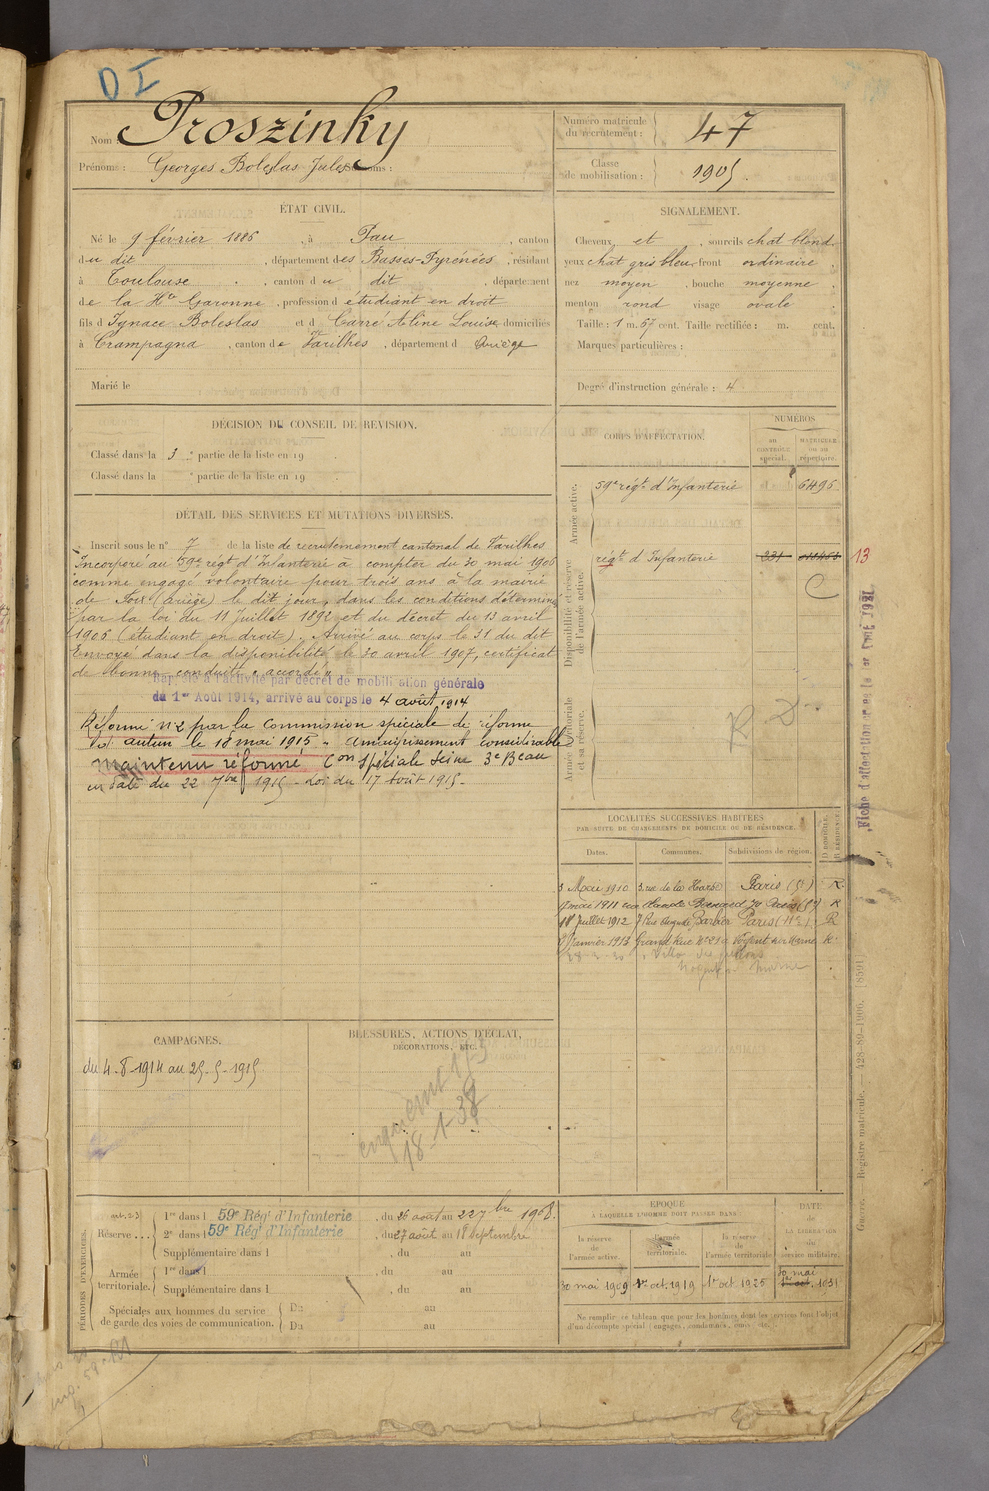 D I
Nom Proszinky
Prénoms : Georges Boleslas Jules Surnoms :
Numéro matricule du recrutement : 47
Classe de mobilisation : 1905.
ÉTAT CIVIL.
Né le 9 février 1886, à Pau, canton
du dit, département des Basses-Pyrénées, résidant
à Toulouse, canton du dit, département
de la Hte Garonne, profession d'étudiant en droit
fils d'Ignace Boleslas et d Carré Aline Louise domiciliés
à Crampagna, canton de Varilhes, département d Ariège
Marié le
SIGNALEMENT.
Cheveux et, sourcils chat blond.
yeux chat gris bleu, front ordinaire
nez moyen, bouche moyenne
menton rond visage ovale
Taille : 1 m. 67 cent. Taille rectifiée : m. cent.
Marques particulières :
Degré d'instruction générale : 4
DÉCISION DU CONSEIL DE REVISION.
Classé dans la 3 e partie de la liste en 19 .
Classé dans la e partie de la liste en 19 .
DÉTAIL DES SERVICES ET MUTATIONS DIVERSES.
Inscrit sous le n° 7 de la liste de recrutement cantonal de Varilhes
Incorporé au 59e régt d'Infanterie à compter du 30 mai 1906
comme engagé volontaire pour trois ans à la mairie
de Foix (Ariège) le dit jour, dans les conditions déterminées
par la loi du 11 Juillet 1892 et du décret du 13 avril
1906 (étudiant en droit). Arrivé au corps le 31 du dit
Envoyé dans la disponibilité le 30 avril 1907, certificat
de bonne conduite "accordé"
Rappelé à l'activité par décret de mobilisation générale
du 1er Août 1914, arrivé au corps le 4 août 1914
Réformé n°2 par la Commission spéciale de réforme
d'Autun le 18 mai 1915 "Amaigrissement considérable"
maintenu réformé Con Spéciale Seine 3e Beau
en date du 22 7bre 1915 - Loi du 17 Août 1915.
CORPS D'AFFECTATION.
NUMÉROS
au contrôle spécial.
matricule ou au répertoire.
Armée active.
59e régt d'Infanterie 6495
Disponibilité et réserve de l'armée active.
régt d'Infanterie 231 13
C
Armée territoriale et sa réserve.
R D
Fiche d'affectation
LOCALITÉS SUCCESSIVES HABITÉES
PAR SUITE DE CHANGEMENTS DE DOMICILE OU DE RÉSIDENCE.
Dates. Communes. Subdivisions de région. D DOMICILE. R RÉSIDENCE.
3 Mai 1910 3, rue de la Harpe Paris (5e) R
mai 1911 rue Claude Bernard 74 Paris (5e) R
18 Juillet 1912 7 Rue Auguste Barbier Paris (11e) R
Janvier 1913 Grand Rue Nogent sur Marne R
Villa
Nogent s. Marne
CAMPAGNES.
du 4-8-1914 au 25-5-1915
BLESSURES, ACTIONS D'ÉCLAT,
DÉCORATIONS, ETC.
18-1-38
PÉRIODES D'EXERCICES.
Réserve ... 1re dans l 59e Rég' d'Infanterie, du 26 août au 22 7bre 1908.
2e dans l 59e Rég' d'Infanterie, du 27 août au 18 Septembre
Supplémentaire dans l , du au
Armée territoriale. 1re dans l , du au
Supplémentaire dans l , du au
Spéciales aux hommes du service de garde des voies de communication. Du au
Du au
ÉPOQUE
À LAQUELLE L'HOMME DOIT PASSER DANS :
la réserve de l'armée active. l'armée territoriale. la réserve de l'armée territoriale.
DATE de LA LIBÉRATION du service militaire.
30 mai 1909 1er oct. 1919 1er oct. 1925 30 mai 1er oct. 1931
Ne remplir ce tableau que pour les hommes dont les services font l'objet
d'un décompte spécial (engagés, condamnés, omis, etc.).
Guerre. — Registre matricule. — 428-89-1906. [8591]